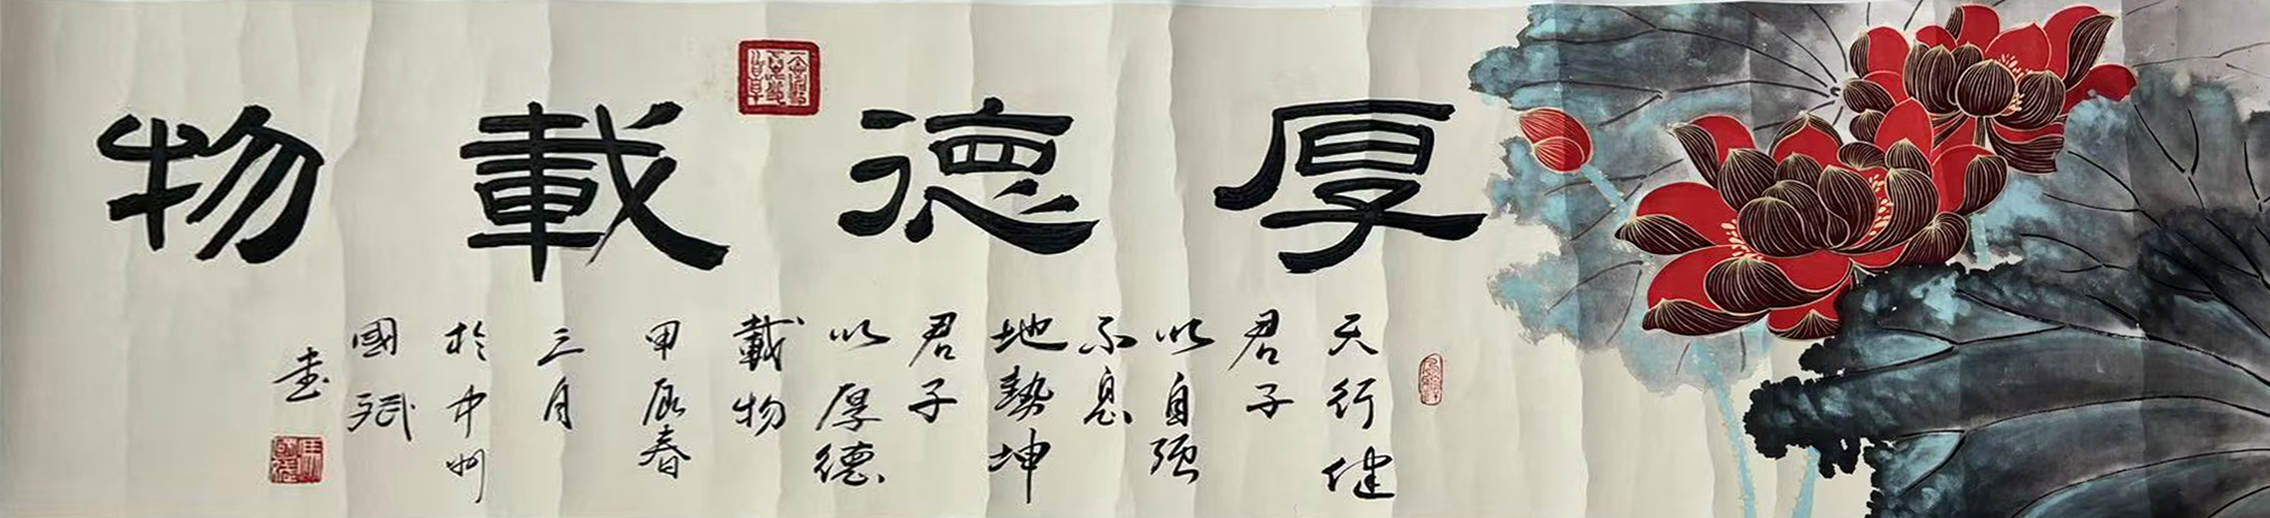 厚德載物
天行健
君子
以自强
不息
地勢坤
君子
以厚德
載物
甲辰春
三月
於中州
國斌
書